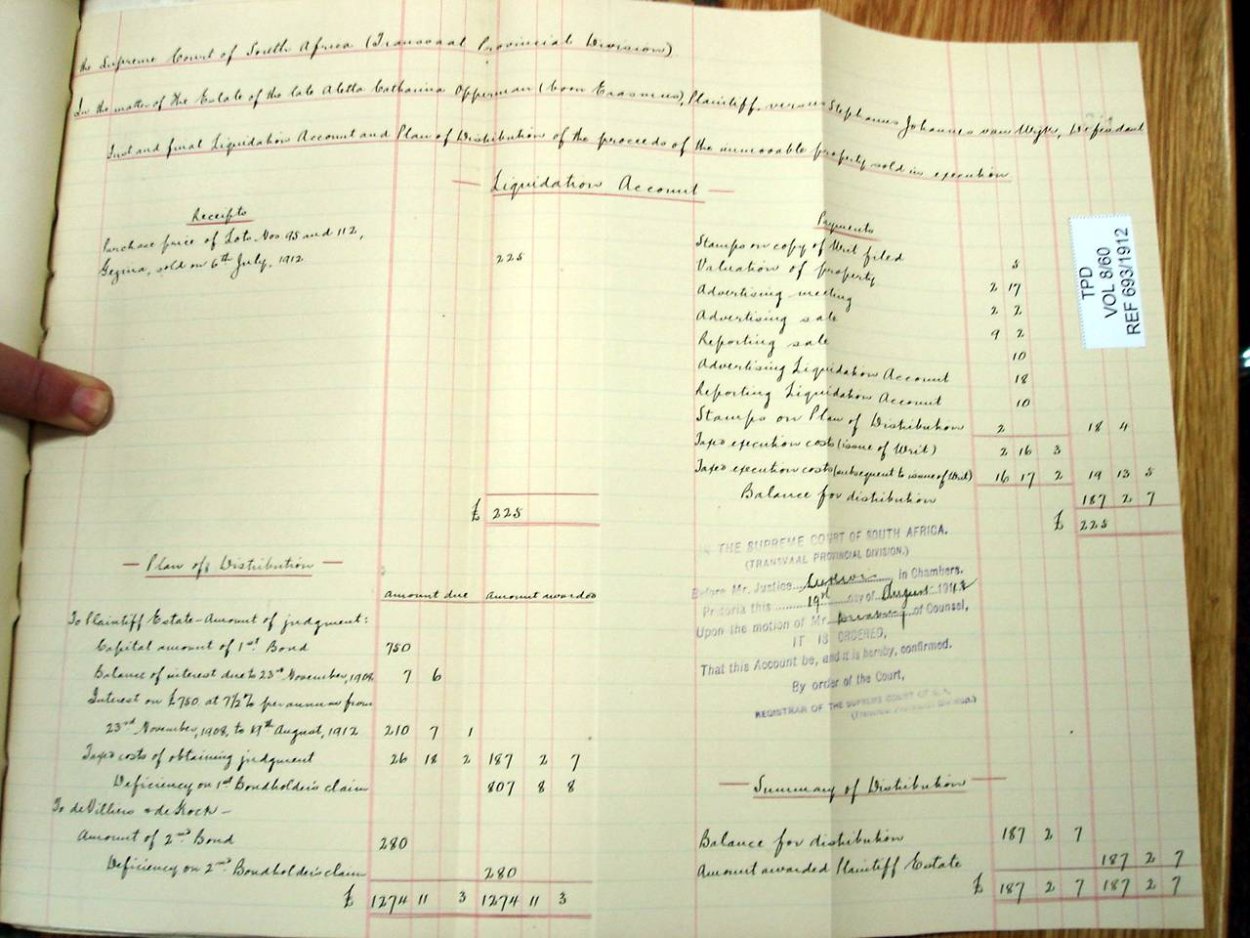 the Supreme Court of South Africa (Transvaal Provincial Division)
In the matter of the Estate of the late Aletta Catharina Opperman (born Erasmus), Plaintiff, versus Stephanus Johannes van Wijk, Defendant
First and final Liquidation Account and Plan of Distribution of the proceeds of the immovable property sold in execution
— Liquidation Account —
Receipts
Purchase price of Lots Nos 95 and 112,
Gezina, sold on 6th July, 1912 225
£ 225
Payments
Stamps on copy of Writ filed 5
Valuation of property 2 17
Advertising meeting 2 2
Advertising sale 9 2
Reporting sale 10
Advertising Liquidation Account 18
Reporting Liquidation Account 10
Stamps on Plan of Distribution 2 18 4
Taxed execution costs (issue of Writ) 2 16 3
Taxed execution costs (subsequent to issue of Writ) 16 17 2 19 13 5
Balance for distribution 187 2 7
£ 225
TPD
VOL 8/60
REF 693/1912
— Plan of Distribution —
amount due amount awarded
To Plaintiff Estate - Amount of judgment:
Capital amount of 1st Bond 750
Balance of interest due to 23rd November, 1908 7 6
Interest on £750 at 7½% per annum from
23rd November, 1908, to 19th August, 1912 210 7 1
Taxed costs of obtaining judgment 26 18 2 187 2 7
Deficiency on 1st Bondholder's claim 807 8 8
To de Villiers & de Kock —
Amount of 2nd Bond 280
Deficiency on 2nd Bondholder's claim 280
£ 1274 11 3 1274 11 3
IN THE SUPREME COURT OF SOUTH AFRICA.
(TRANSVAAL PROVINCIAL DIVISION.)
Before Mr. Justice in Chambers.
Pretoria this 19th day of August 1912
Upon the motion of Mr. of Counsel,
IT IS ORDERED,
That this Account be, and it is hereby, confirmed.
By order of the Court,
REGISTRAR OF THE SUPREME COURT OF S.A.
(TRANSVAAL PROVINCIAL DIVISION.)
— Summary of Distribution —
Balance for distribution 187 2 7
Amount awarded Plaintiff Estate 187 2 7
£ 187 2 7 187 2 7